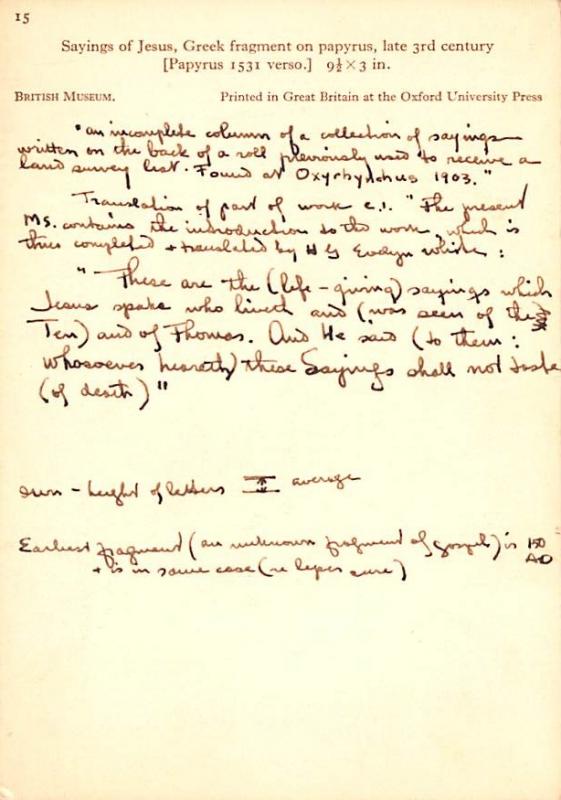 15
Sayings of Jesus, Greek fragment on papyrus, late 3rd century
[Papyrus 1531 verso.] 9½ × 3 in.
British Museum. Printed in Great Britain at the Oxford University Press
"an incomplete column of a collection of sayings
written on the back of a roll previously used to receive a
land survey list. Found at Oxyrhynchus 1903."
Translation of part of work "The present
Ms. contains the introduction to the work, which is
thus completed + translated by H G Evelyn White :
"These are the (life-giving) sayings which
Jesus spake who liveth and (was seen of the
Ten) and of Thomas. And He said (to them :
whosoever heareth) these Sayings shall not taste
(of death)"
height of letters average
Earliest fragment (an unknown fragment of gospel) is 150
AD
+ is in same case (re leper cure)